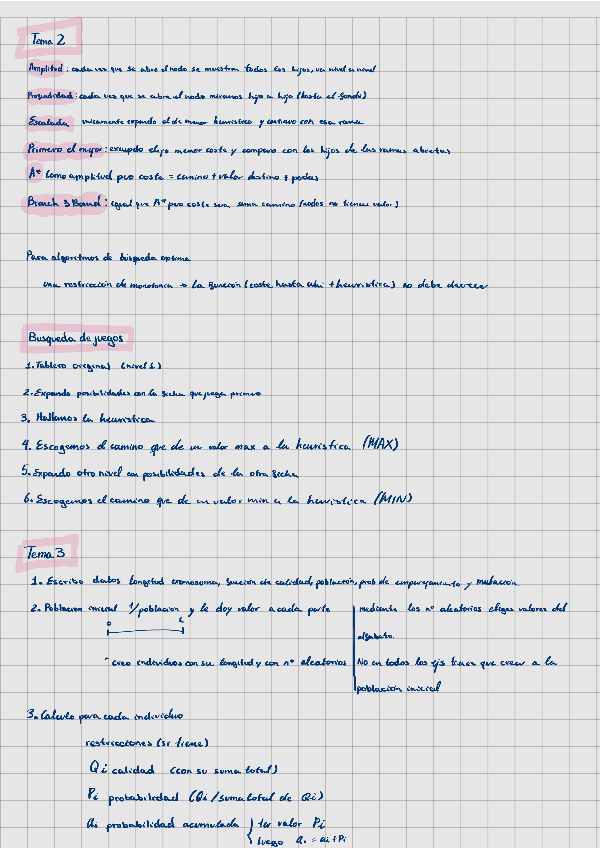 Tema 2
Amplitud: cada vez que se abre el nodo se muestran todos los hijos, va nivel a nivel
Profundidad: cada vez que se abre el nodo miramos hijo a hijo (hasta el fondo)
Escalada unicamente expando el de menor heuristico y continuo con esa rama
Primero el mejor: excepto elijo menor coste y comparo con los hijos de las ramas abiertas
A* como amplitud pero coste = camino + valor destino + podas
Branch & Bound: igual que A* pero coste sera suma camino (nodos no tienen valor)
Para algoritmos de busqueda optima
una restriccion de monotonia → la función (coste hasta ahi + heuristica) no debe decrecer
Busqueda de juegos
1. Tablero original (nivel 1)
2. Expando posibilidades con la ficha que juega primero
3. Hallamos la heuristica
4. Escogemos el camino que de un valor max a la heuristica (MAX)
5. Expando otro nivel con posibilidades de la otra ficha
6. Escogemos el camino que de un valor min a la heuristica (MIN)
Tema 3
1. Escribo datos longitud cromosoma, función de calidad, población, prob de emparejamiento y mutación.
2. Poblacion inicial 1/poblacion y le doy valor a cada parte
0 1
- creo individuos con su longitud y con nº aleatorios
mediante los nº aleatorios eliges valores del
alfabeto.
No en todos los ejs tienes que crear a la
población inicial
3. Calculo para cada individuo
restricciones (si tiene)
Qi calidad (con su suma total)
Pi probabilidad (Qi / suma total de Qi)
ai probabilidad acumulada { 1er valor Pi
luego a. = ai + Pi